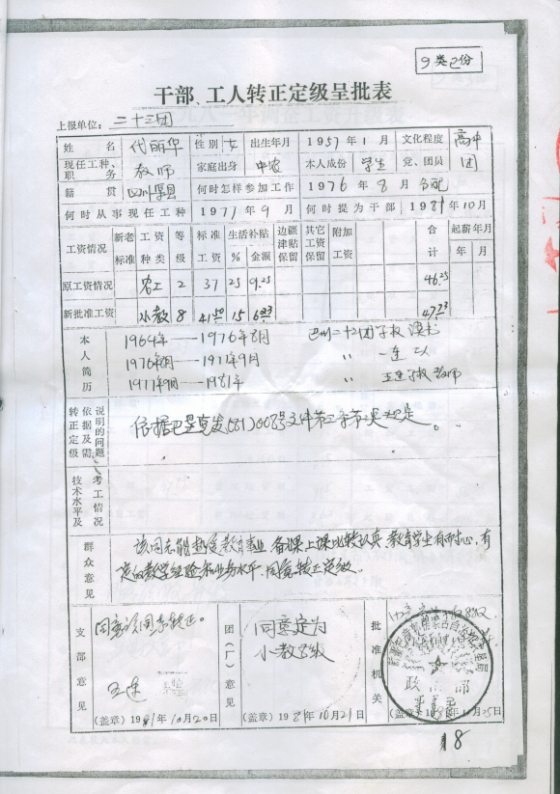 9类2份
干部、工人转正定级呈批表
上报单位：二十三团
姓名 代丽华 性别 女 出生年月 1957年1月 文化程度 高中
现任工种、职务 教师 家庭出身 中农 本人成份 学生 党、团员 团
籍贯 四川 何时怎样参加工作 1976年8月 分配
何时从事现任工种 1977年9月 何时提为干部 1981年10月
工资情况 新老标准 工资种类 等级 标准工资 生活补贴 % 金额 边疆津贴保留 其它工资保留 附加工资 合计 起薪年月 年 月
原工资情况 农工 2 37 25 9.25 46.25
新批准工资 小教 8 15 6.23 47.73
本人简历
1964年——1976年8月 巴州二十三团学校 读书
1976年8月——1977年9月 〃 一连
1977年9月——1981年 〃 五连学校 教师
转正定级依据及需说明的问题
依据巴垦党发(81)008号文件第二章第二类规定。
技术水平及考工情况
群众意见
该同志能热爱教育事业，备课上课比较认真，教育学生有耐心，有
定的教学经验和业务水平，同意转正定级。
支部意见
同意该同志转正。
(盖章)1981年10月20日
团(厂)意见
同意定为
小教8级
(盖章)1981年10月21日
批准机关
政 部
(盖章)
18